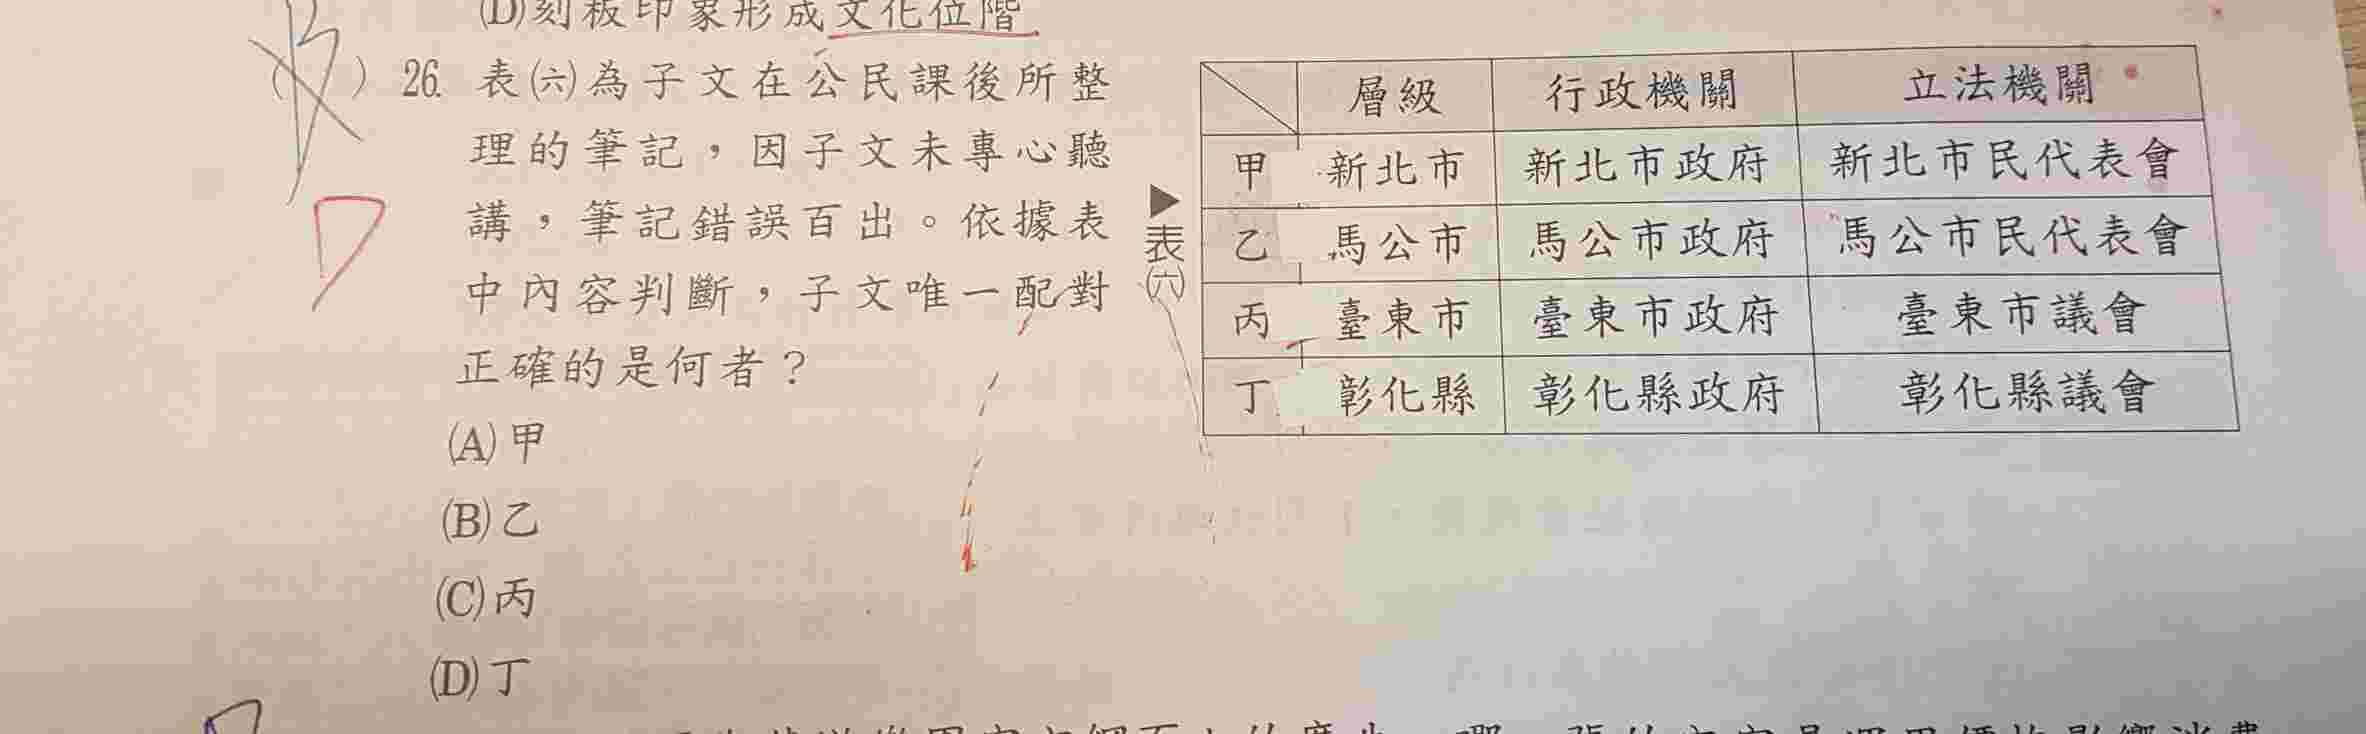 (D)刻板印象形成文化位階
B
( ) 26. 表㈥為子文在公民課後所整
理的筆記，因子文未專心聽
講，筆記錯誤百出。依據表
中內容判斷，子文唯一配對
正確的是何者？
D
(A)甲
(B)乙
(C)丙
(D)丁
▶表㈥
層級 行政機關 立法機關
甲 新北市 新北市政府 新北市民代表會
乙 馬公市 馬公市政府 馬公市民代表會
丙 臺東市 臺東市政府 臺東市議會
丁 彰化縣 彰化縣政府 彰化縣議會